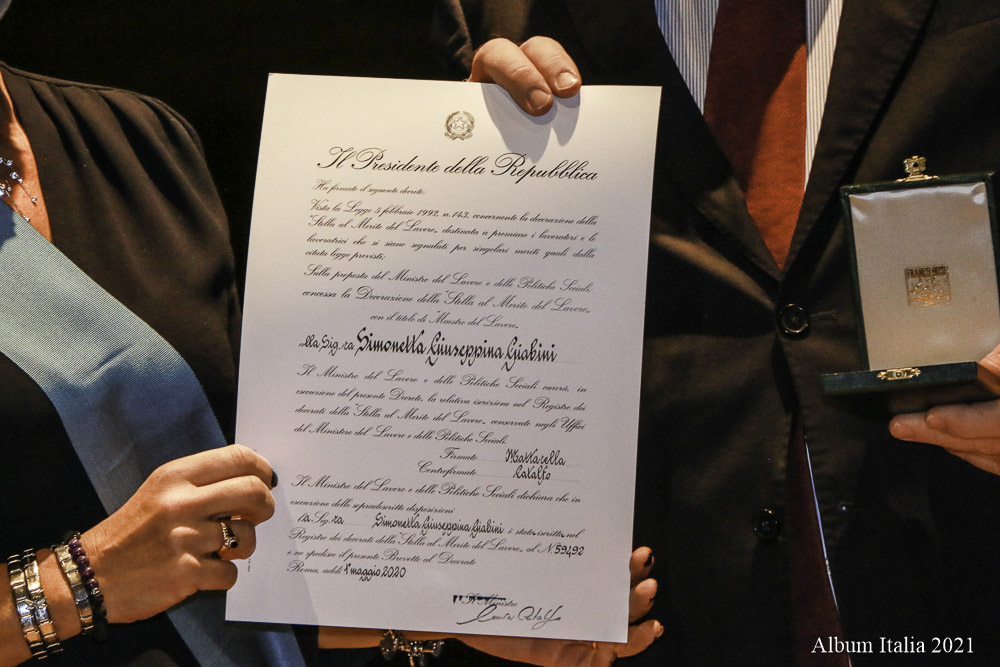 Il Presidente della Repubblica
Ha firmato il seguente decreto:
Vista la Legge 5 febbraio 1992, n. 143, concernente la decorazione della
"Stella al Merito del Lavoro", destinata a premiare i lavoratori e le
lavoratrici che si siano segnalati per singolari meriti quali dalla
citata legge previsti;
Sulla proposta del Ministro del Lavoro e delle Politiche Sociali;
concessa la Decorazione della "Stella al Merito del Lavoro"
con il titolo di "Maestro del Lavoro"
alla Sig.ra Simonetta Giuseppina Giabini
Il Ministro del Lavoro e delle Politiche Sociali curerà, in
esecuzione del presente Decreto, la relativa iscrizione nel Registro dei
decorati della "Stella al Merito del Lavoro" conservato negli Uffici
del Ministero del Lavoro e delle Politiche Sociali.
Firmato Mattarella
Controfirmato Catalfo
Il Ministro del Lavoro e delle Politiche Sociali dichiara che in
esecuzione delle sopradescritte disposizioni
la Sig.ra Simonetta Giuseppina Giabini è stata iscritta nel
Registro dei decorati della "Stella al Merito del Lavoro" al N° 59492
e ne spedisce il presente Brevetto al Decorato
Roma, addì 1° maggio 2020
Il Ministro
Album Italia 2021